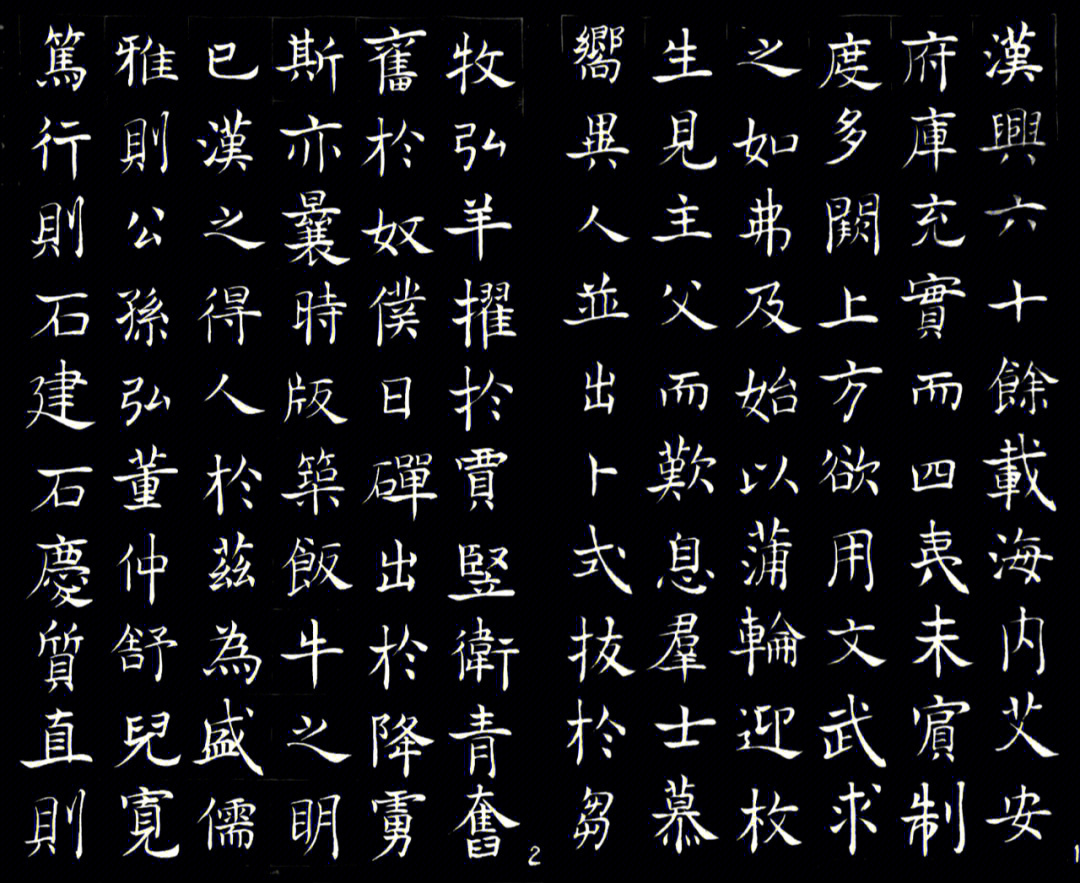 漢興六十餘載海内艾安
府庫充實而四夷未賓制
度多闕上方欲用文武求
之如弗及始以蒲輪迎枚
生見主父而歎息羣士慕
嚮異人並出卜式拔於芻
1
牧弘羊擢於賈豎衛青奮
奮於奴僕日磾出於降虜
斯亦曩時版築飯牛之明
已漢之得人於茲為盛儒
雅則公孫弘董仲舒兒寬
篤行則石建石慶質直則
2